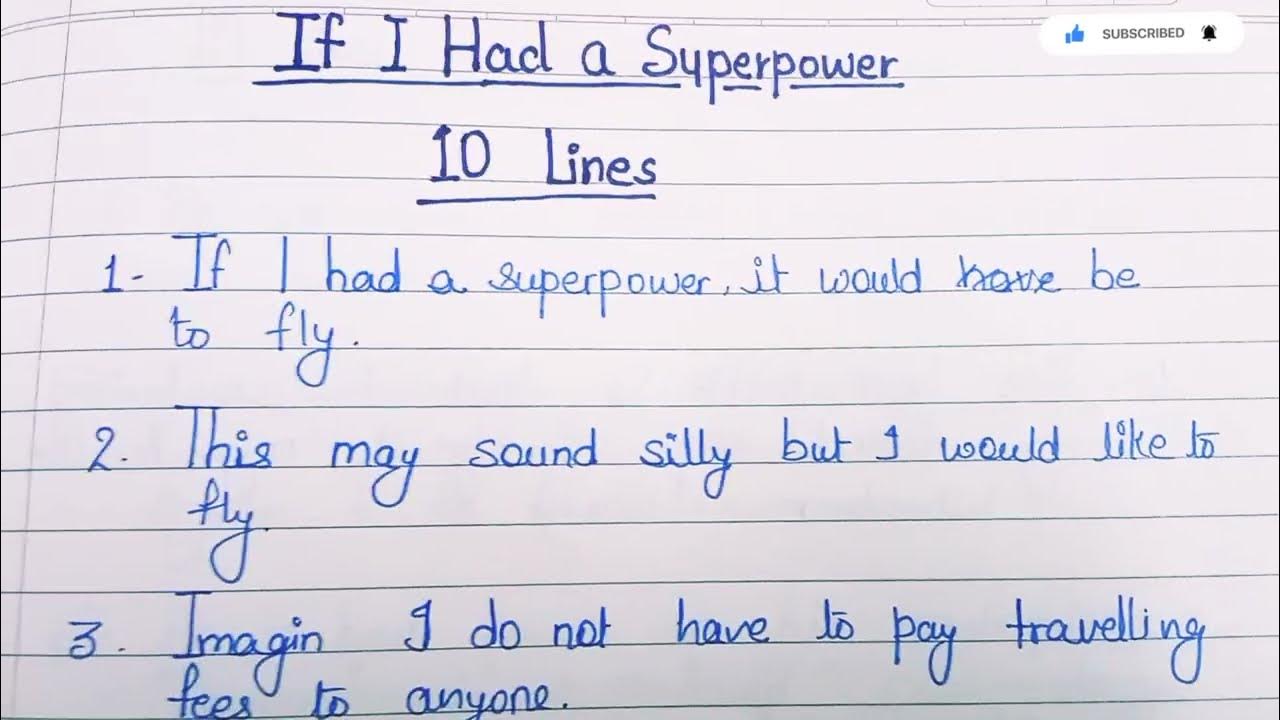 If I Had a Superpower
SUBSCRIBED
10 Lines
1- If I had a superpower, it would have be
to fly.
2. This may sound silly but I would like to
fly.
3. Imagin I do not have to pay travelling
fees to anyone.